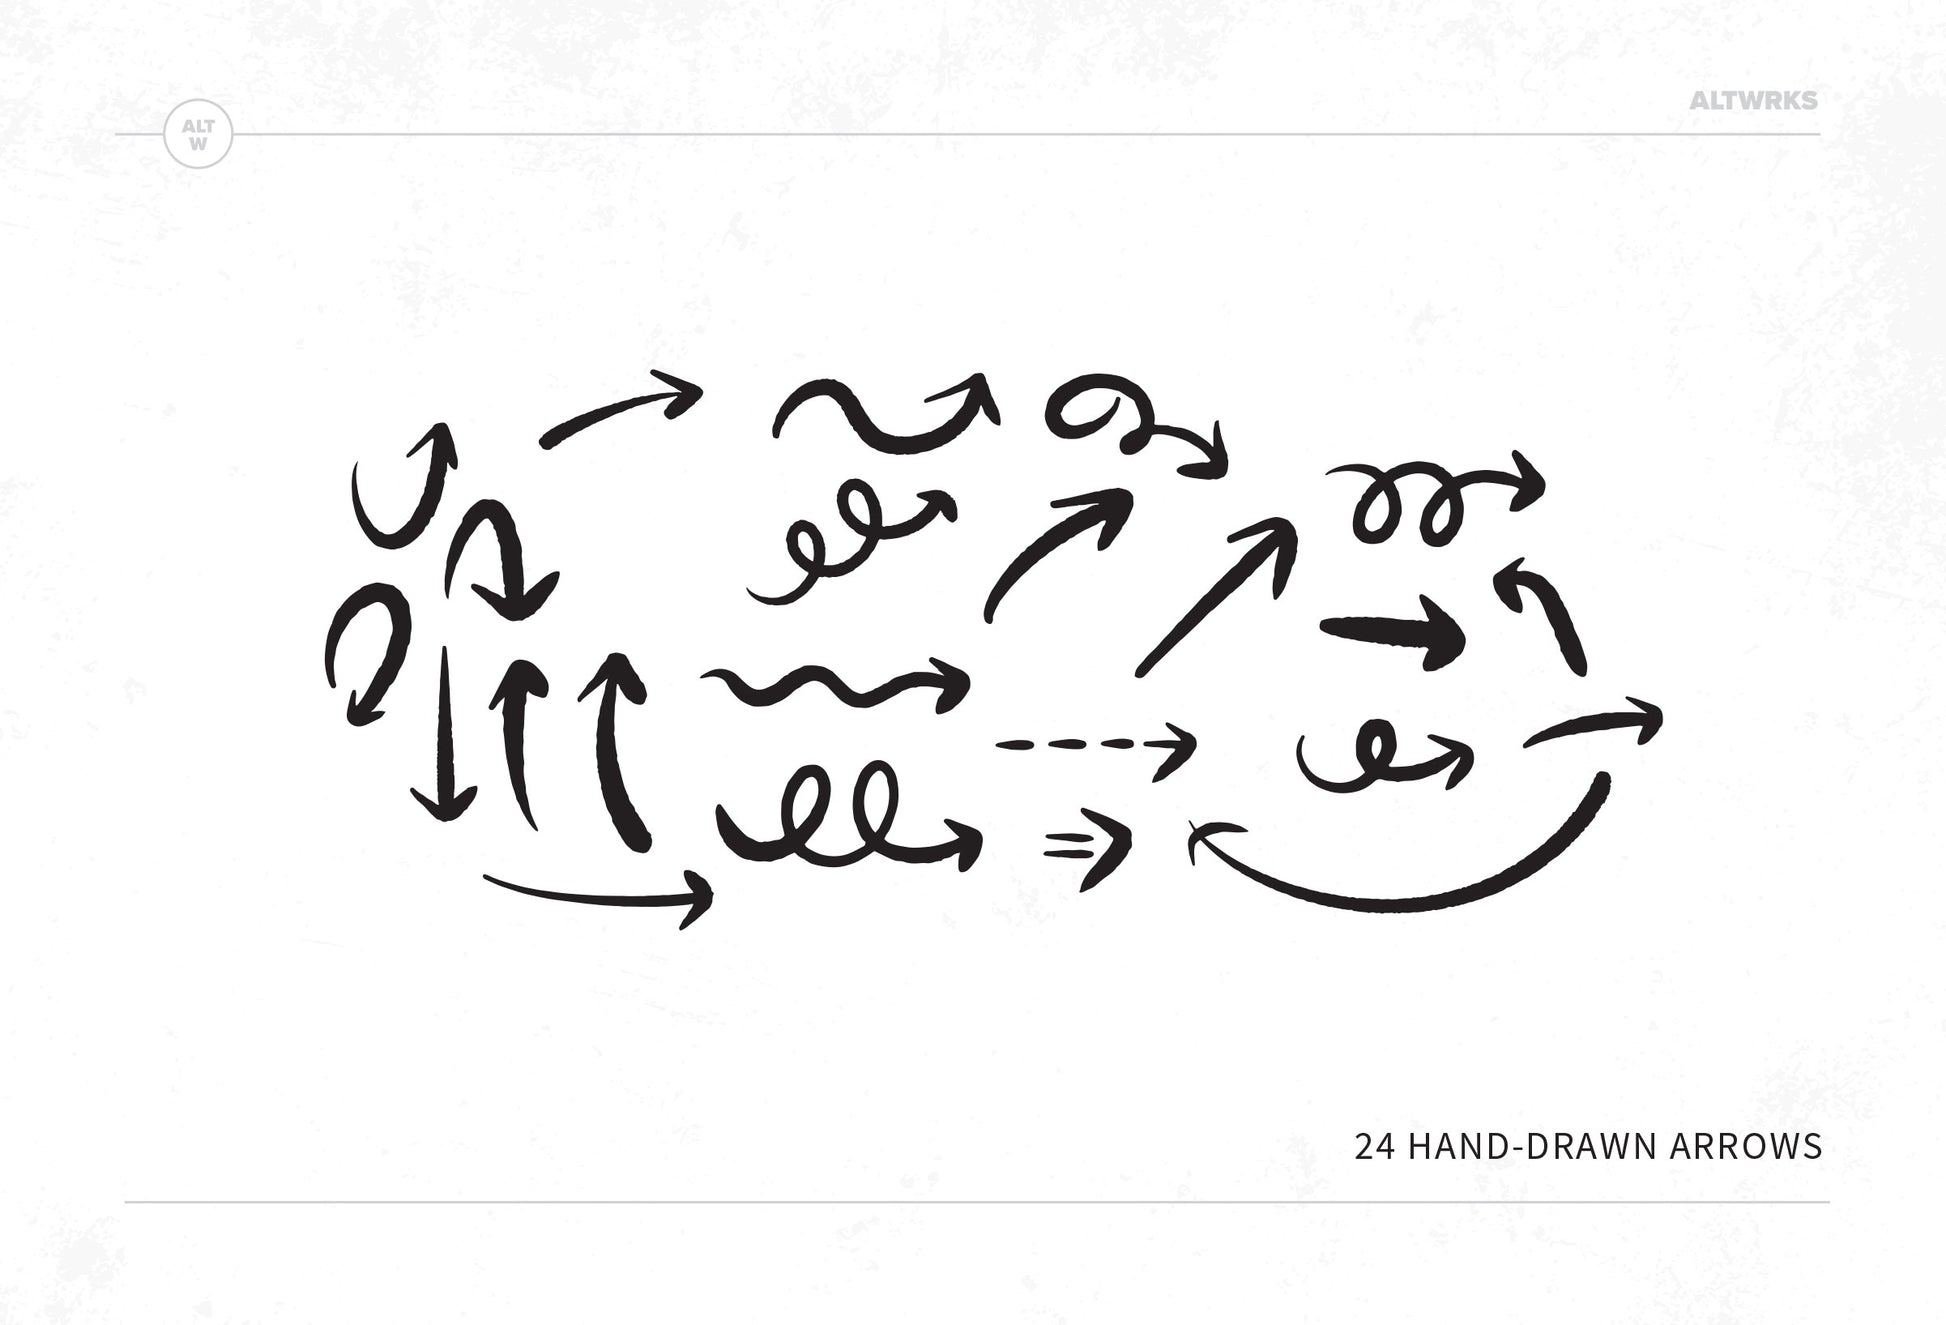 ALT
W
ALTWRKS
24 HAND-DRAWN ARROWS